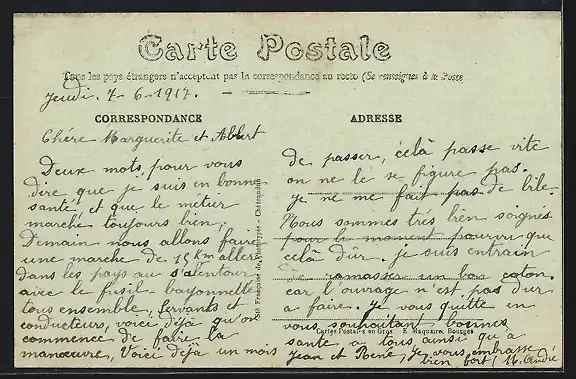 Carte Postale
Tous les pays étrangers n'acceptent pas la correspondance au recto (Se renseigner à la Poste
Jeudi. 7-6-1917.
CORRESPONDANCE
Chère Marguerite et Albert
Deux mots, pour vous
dire que je suis en bonne
santé et que le métier
marche toujours bien,
Demain nous allons faire
une marche de 15 km aller
dans les pays au s'alentour
avec le fusil bayonnette
tous ensemble, servants et
conducteurs, voici déjà qu'on
commence de faire la
manœuvre, Voici déjà un mois
ADRESSE
de passer, cela passe vite
on ne le se figure pas.
je ne me fait pas de bile.
Nous sommes très bien soignés
pour le moment pourvu que
celà dur. je suis entrain
de ramasser un bon
car l'ouvrage n'est pas dur
a faire. je vous quitte en
vous souhaitant bonnes
santé a tous, ainsi qu'à
Jean et René, je vous embrasse
bien fort, André
Cartes Postales en Gros E. Maquaire, Bourges